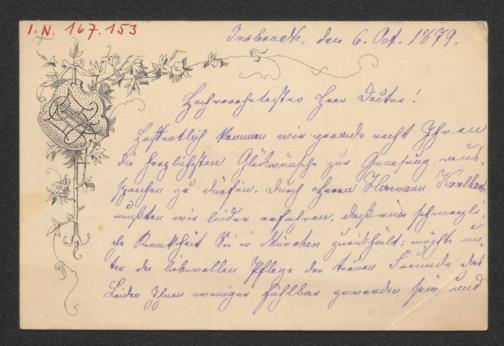 I.N. 167.153
Innsbruck, den 6. Oct. 1879.
Hochverehrtester Herr Doctor!
Hoffentlich kommen wir gerade recht Ihnen
die herzlichsten Glückwünsche zur Genesung aus-
sprechen zu dürfen. Durch Herrn Hermann
mußten wir leider erfahren, daß eine schmerzli-
che Krankheit Sie in München zurückhält; möchte un-
ter der liebevollen Pflege der treuen Freunde das
Leiden Ihnen weniger fühlbar geworden sein und